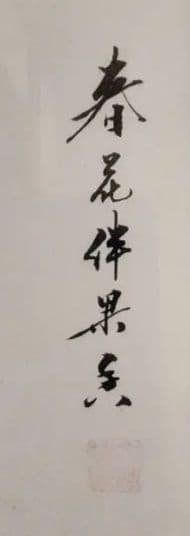 春花伴果香